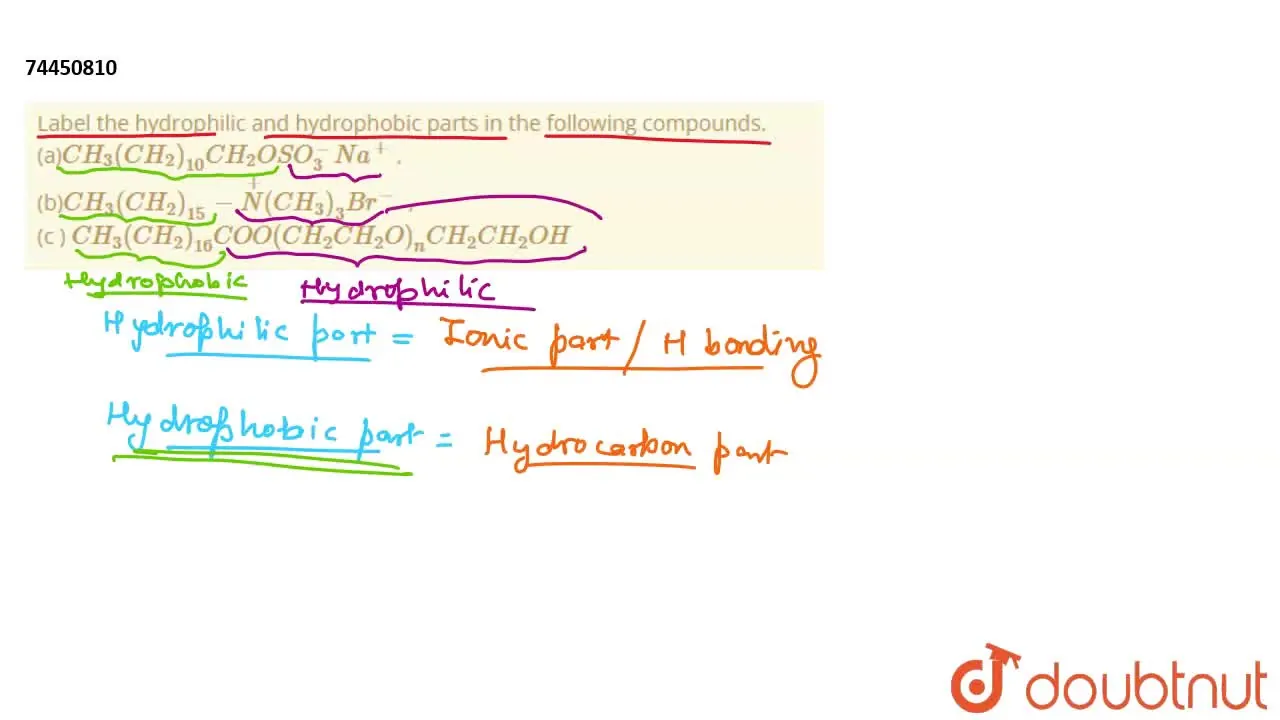 74450810
Label the hydrophilic and hydrophobic parts in the following compounds.
(a)CH₃(CH₂)₁₀CH₂OSO₃⁻Na⁺ .
(b)CH₃(CH₂)₁₅ − N⁺(CH₃)₃Br⁻ .
(c ) CH₃(CH₂)₁₆COO(CH₂CH₂O)ₙCH₂CH₂OH
Hydrophobic Hydrophilic
Hydrophilic part = Ionic part / H bonding
Hydrophobic part = Hydrocarbon part
doubtnut